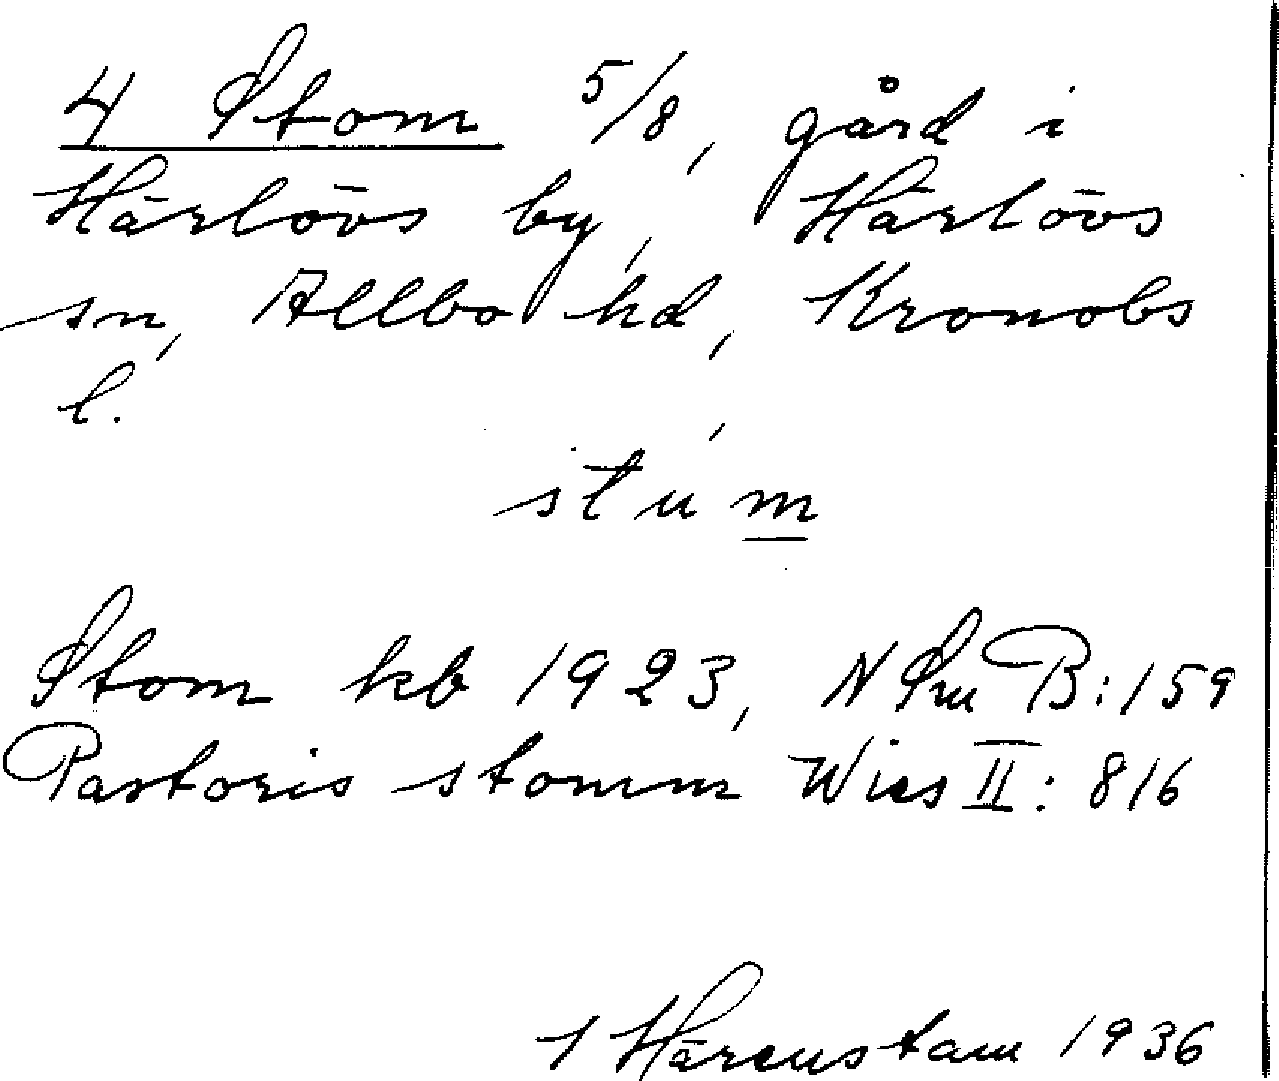 4 Stom 5/8, gård i
Härlövs by, Härlövs
sn, Allbo hd, Kronobs
l.
stum
Stom kb 1923, N Sm B:159
Pastoris stomm Wies II: 816
I Härenstam 1936